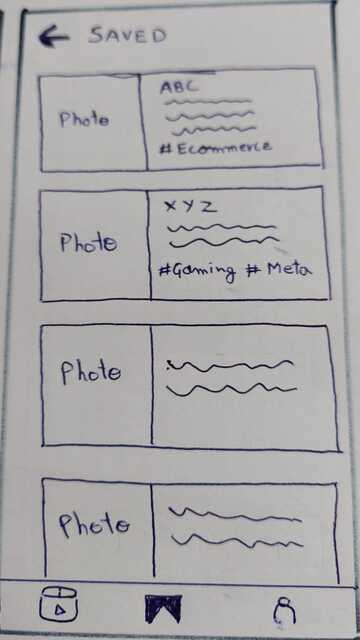 ← SAVED
Photo
ABC
#Ecommerce
Photo
XYZ
#Gaming # Meta
Photo
Photo